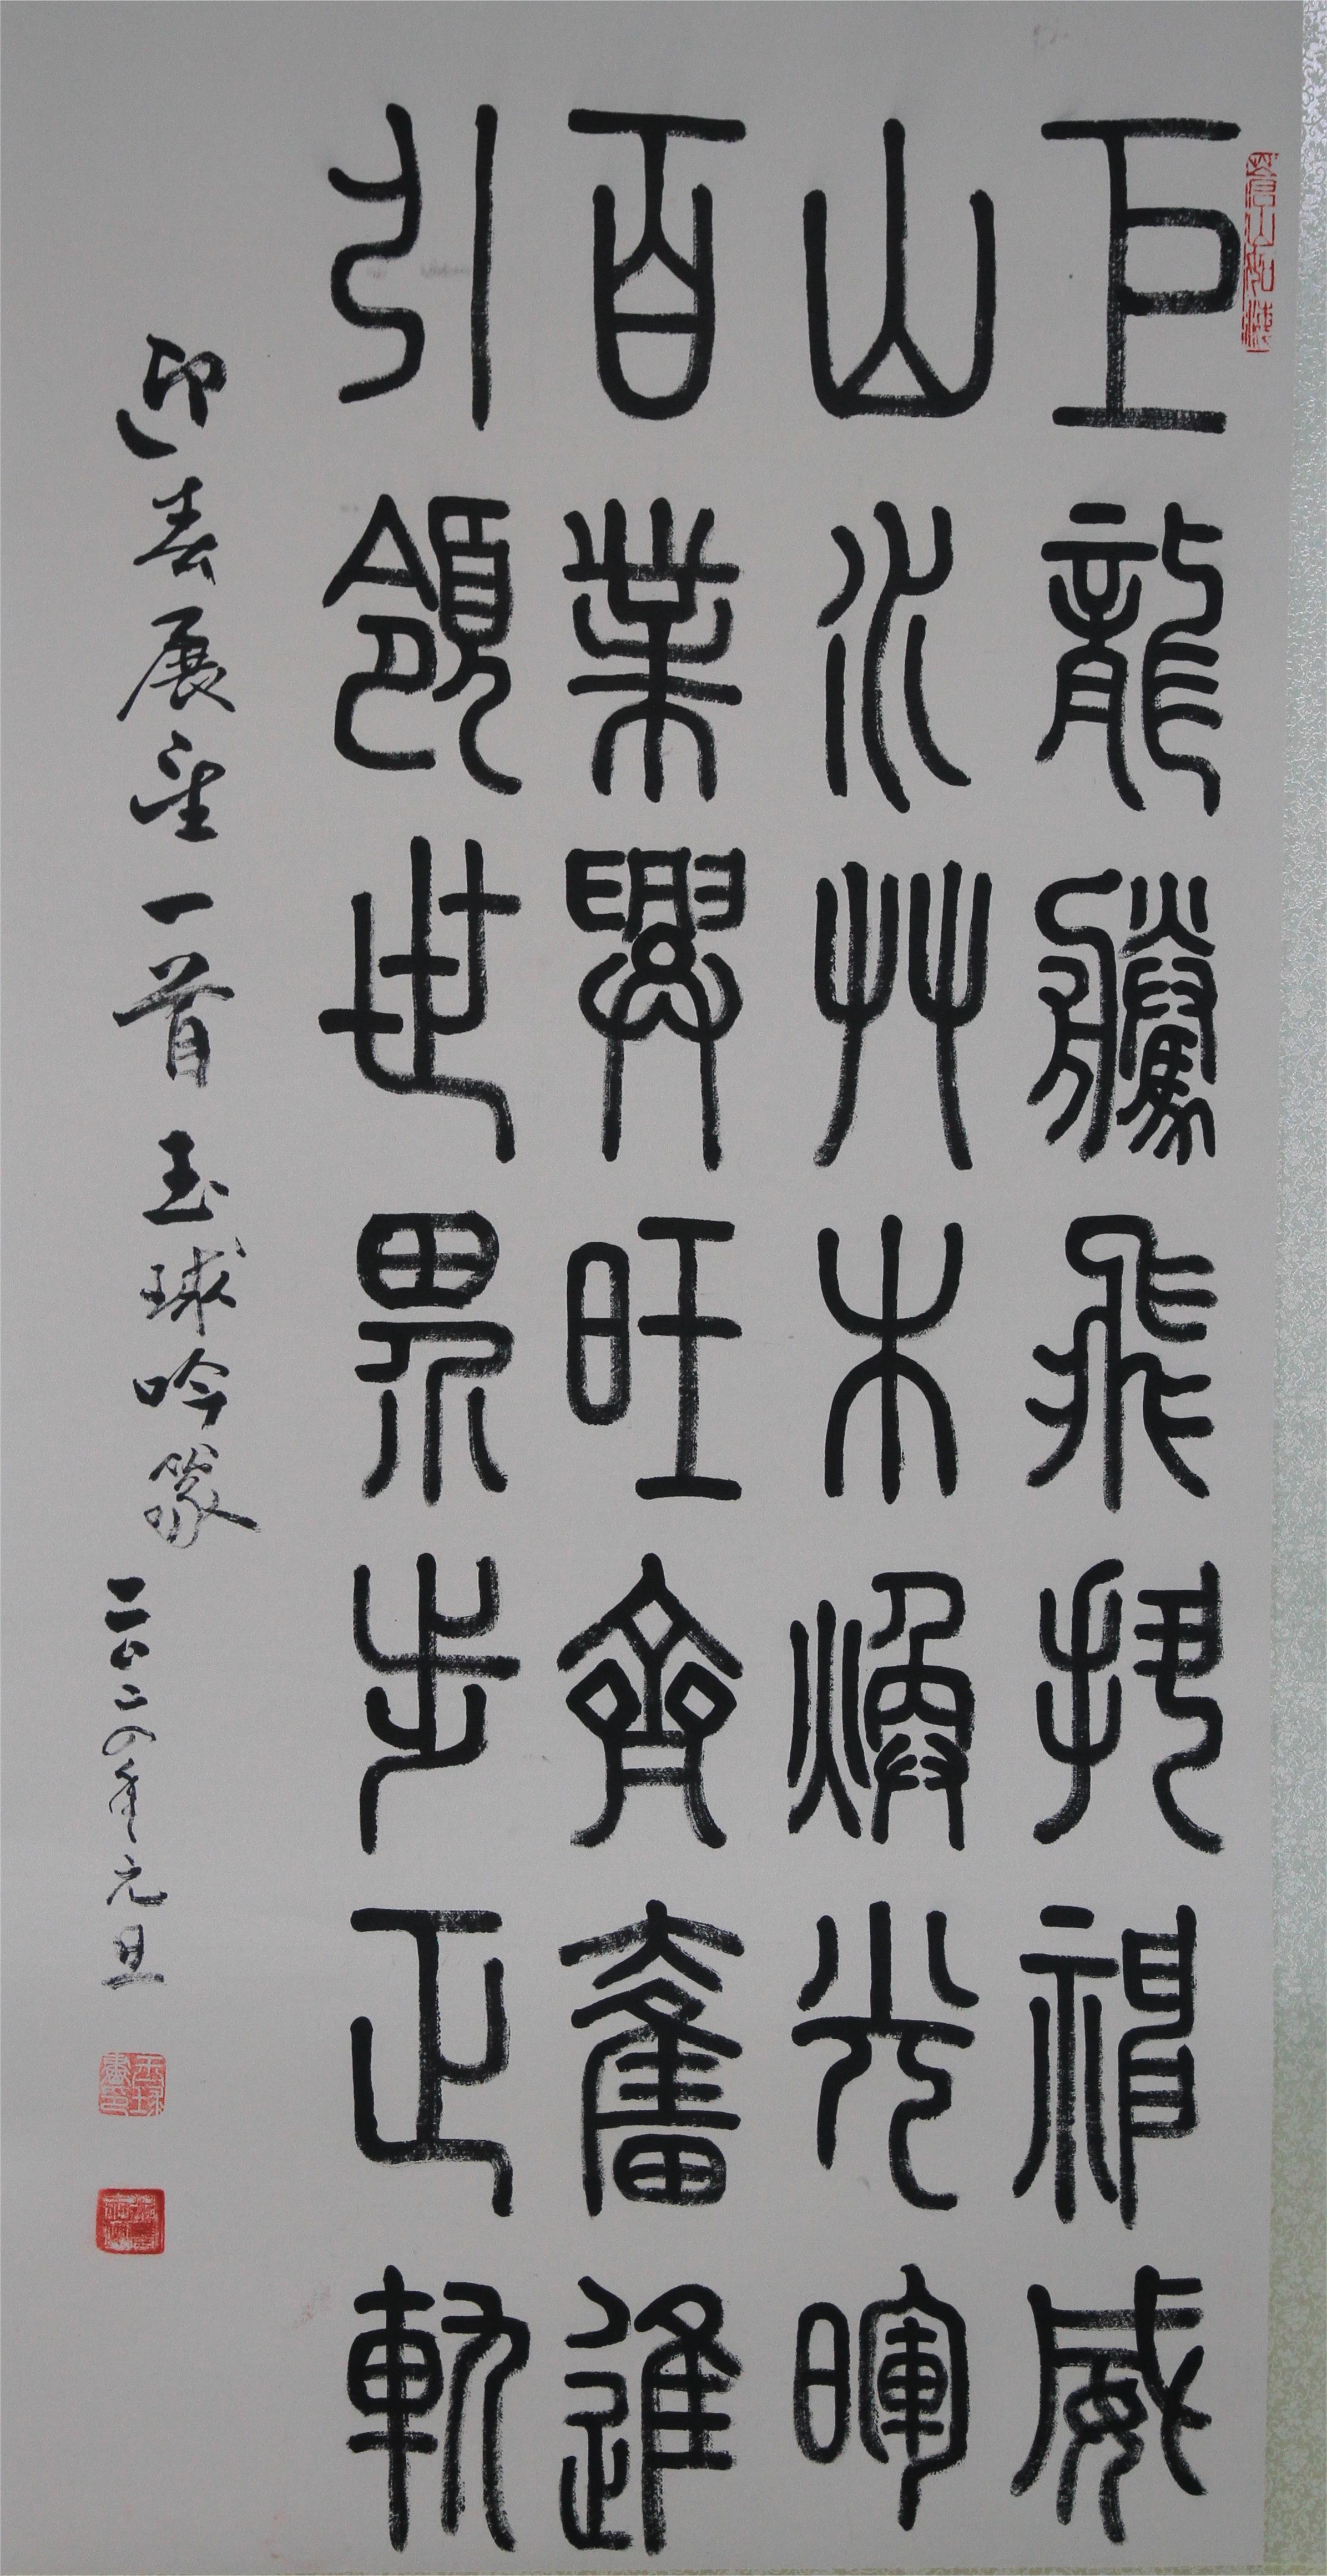 巨龍騰飛神威
山水艸木煥光暉
百業興旺齊奮進
引領世界步正軌
迎春展望一首 玉球吟篆
二〇二四年元旦
蒼山如海